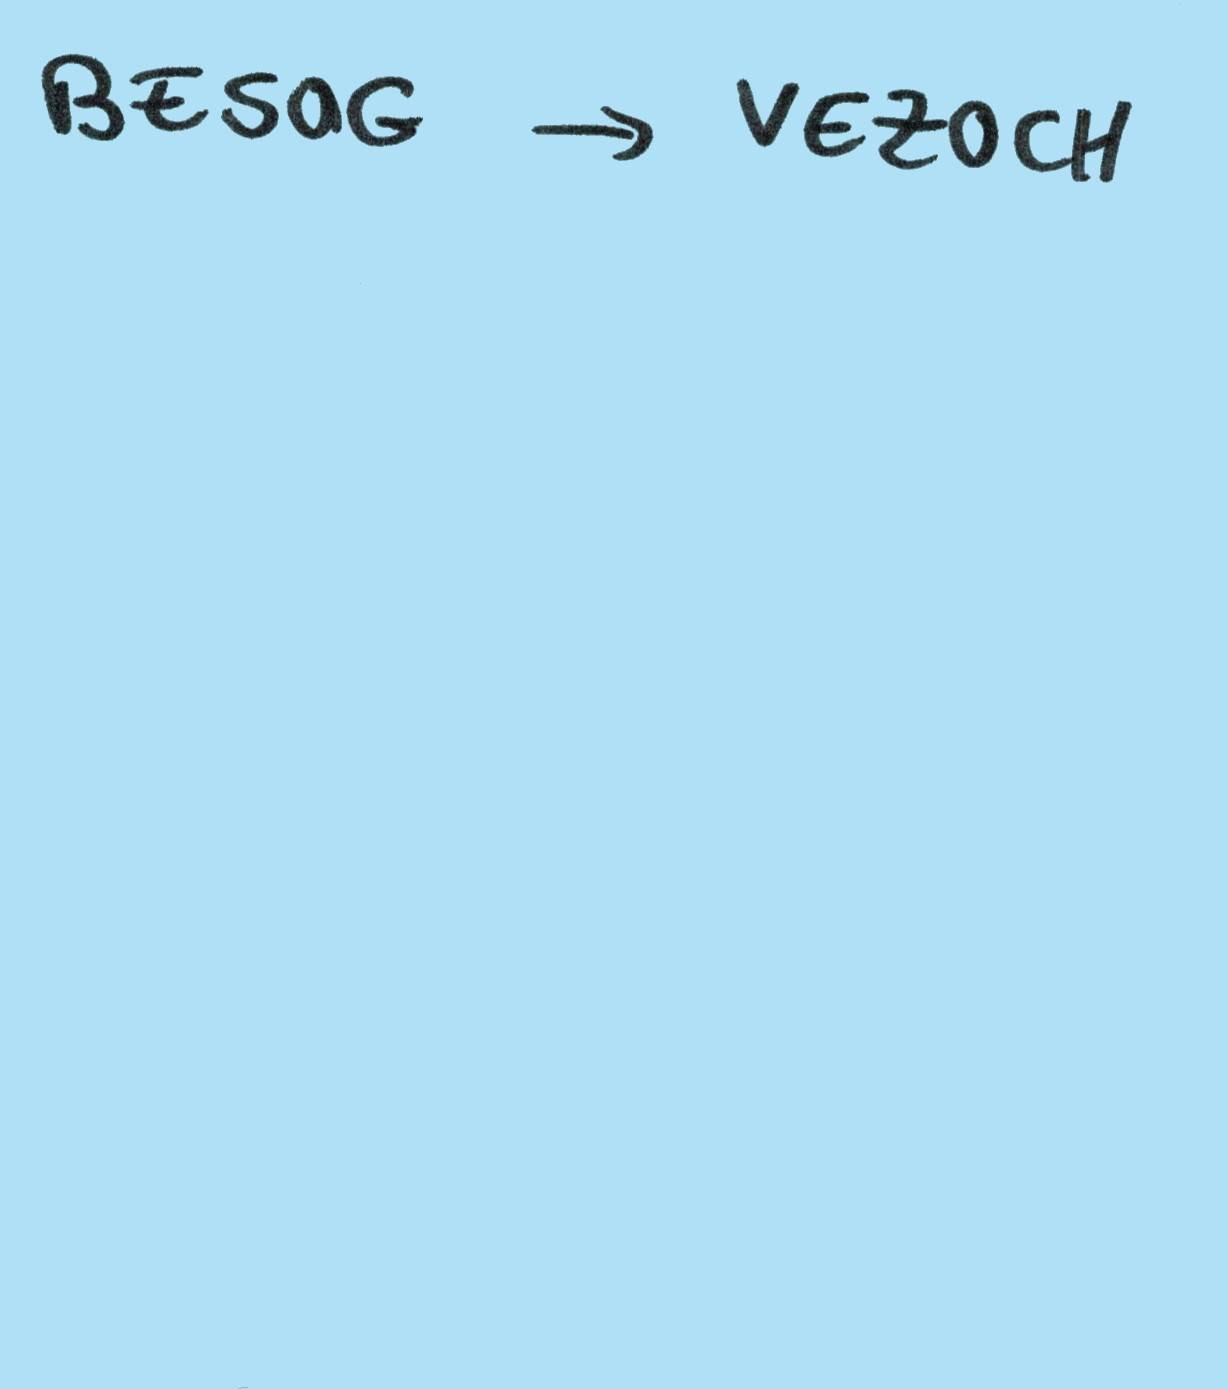 BESOG → VEZOCH